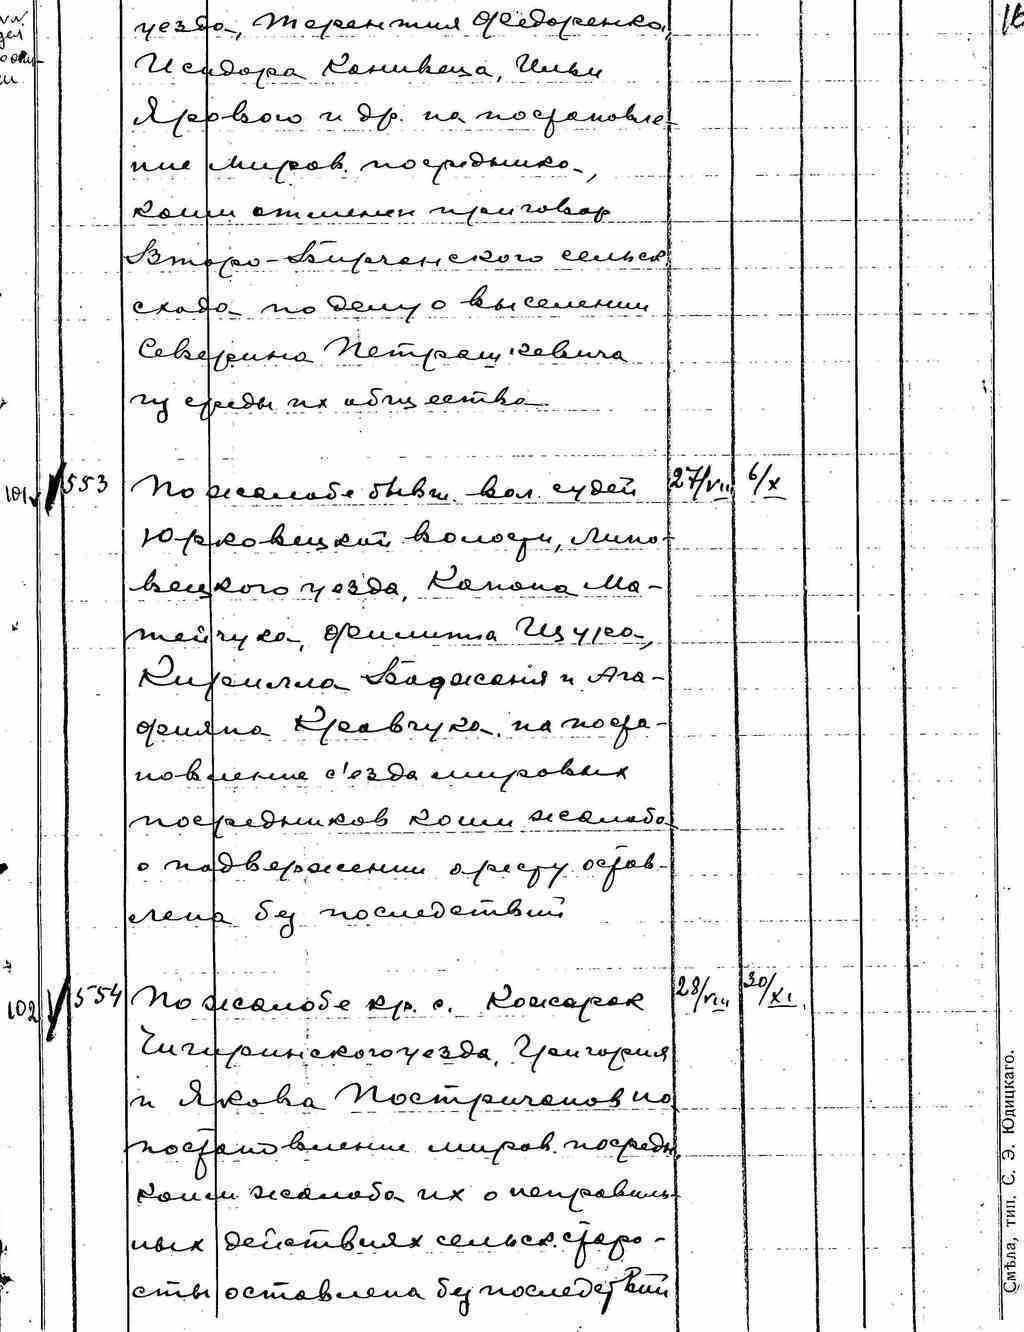 уезда, Терентия Федоренко,
Исидора Конивеца, Ильи
Ярового и др. на постановле-
ние миров. посредника,
коим отменен приговор
Второ-Бирчанского сельск.
схода по делу о выселении
Северина Петрашкевича
из среды их общества
101 553 По жалобе бывш. вол. судей 27/VIII 6/X
Юрковецкой волости, Липо-
вецкого уезда, Конона Ма-
тейчука, Филиппа Щура,
Кирилла Бадженія и Ага-
фияна Кравчука, на поста-
новление с'езда мировых
посредников коим жалоба
о подвержении аресту остав-
лена без последствий
102 554 По жалобе кр. с. Кожарок 28/VIII 30/XI
Чигиринского уезда, Григория
и Якова Постриганов на
постановление миров. посредн.
коим жалоба их о неправиль-
ных действиях сельск. старо-
сты оставлена без последствий
Смѣла, тип. С. Э. Юдицкаго.